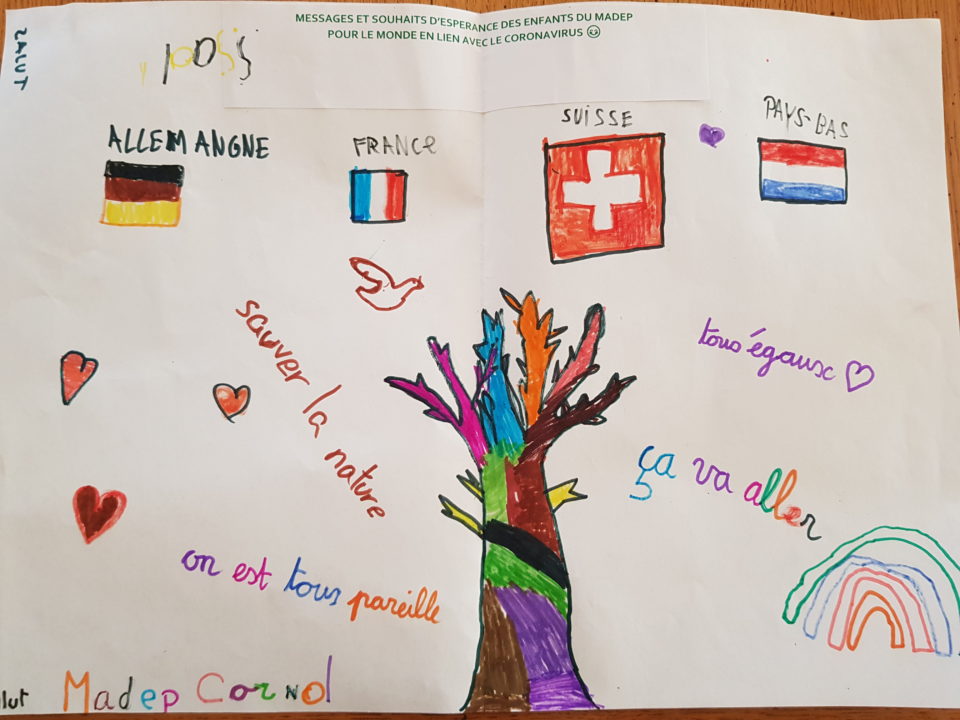 MESSAGES ET SOUHAITS D'ESPERANCE DES ENFANTS DU MADEP
POUR LE MONDE EN LIEN AVEC LE CORONAVIRUS ☺
ZALUT
ALLEMANGNE
FRANCE
SUISSE
PAYS-BAS
sauver la nature
tous égaux ♡
ça va aller
on est tous pareille
Madep Cornol